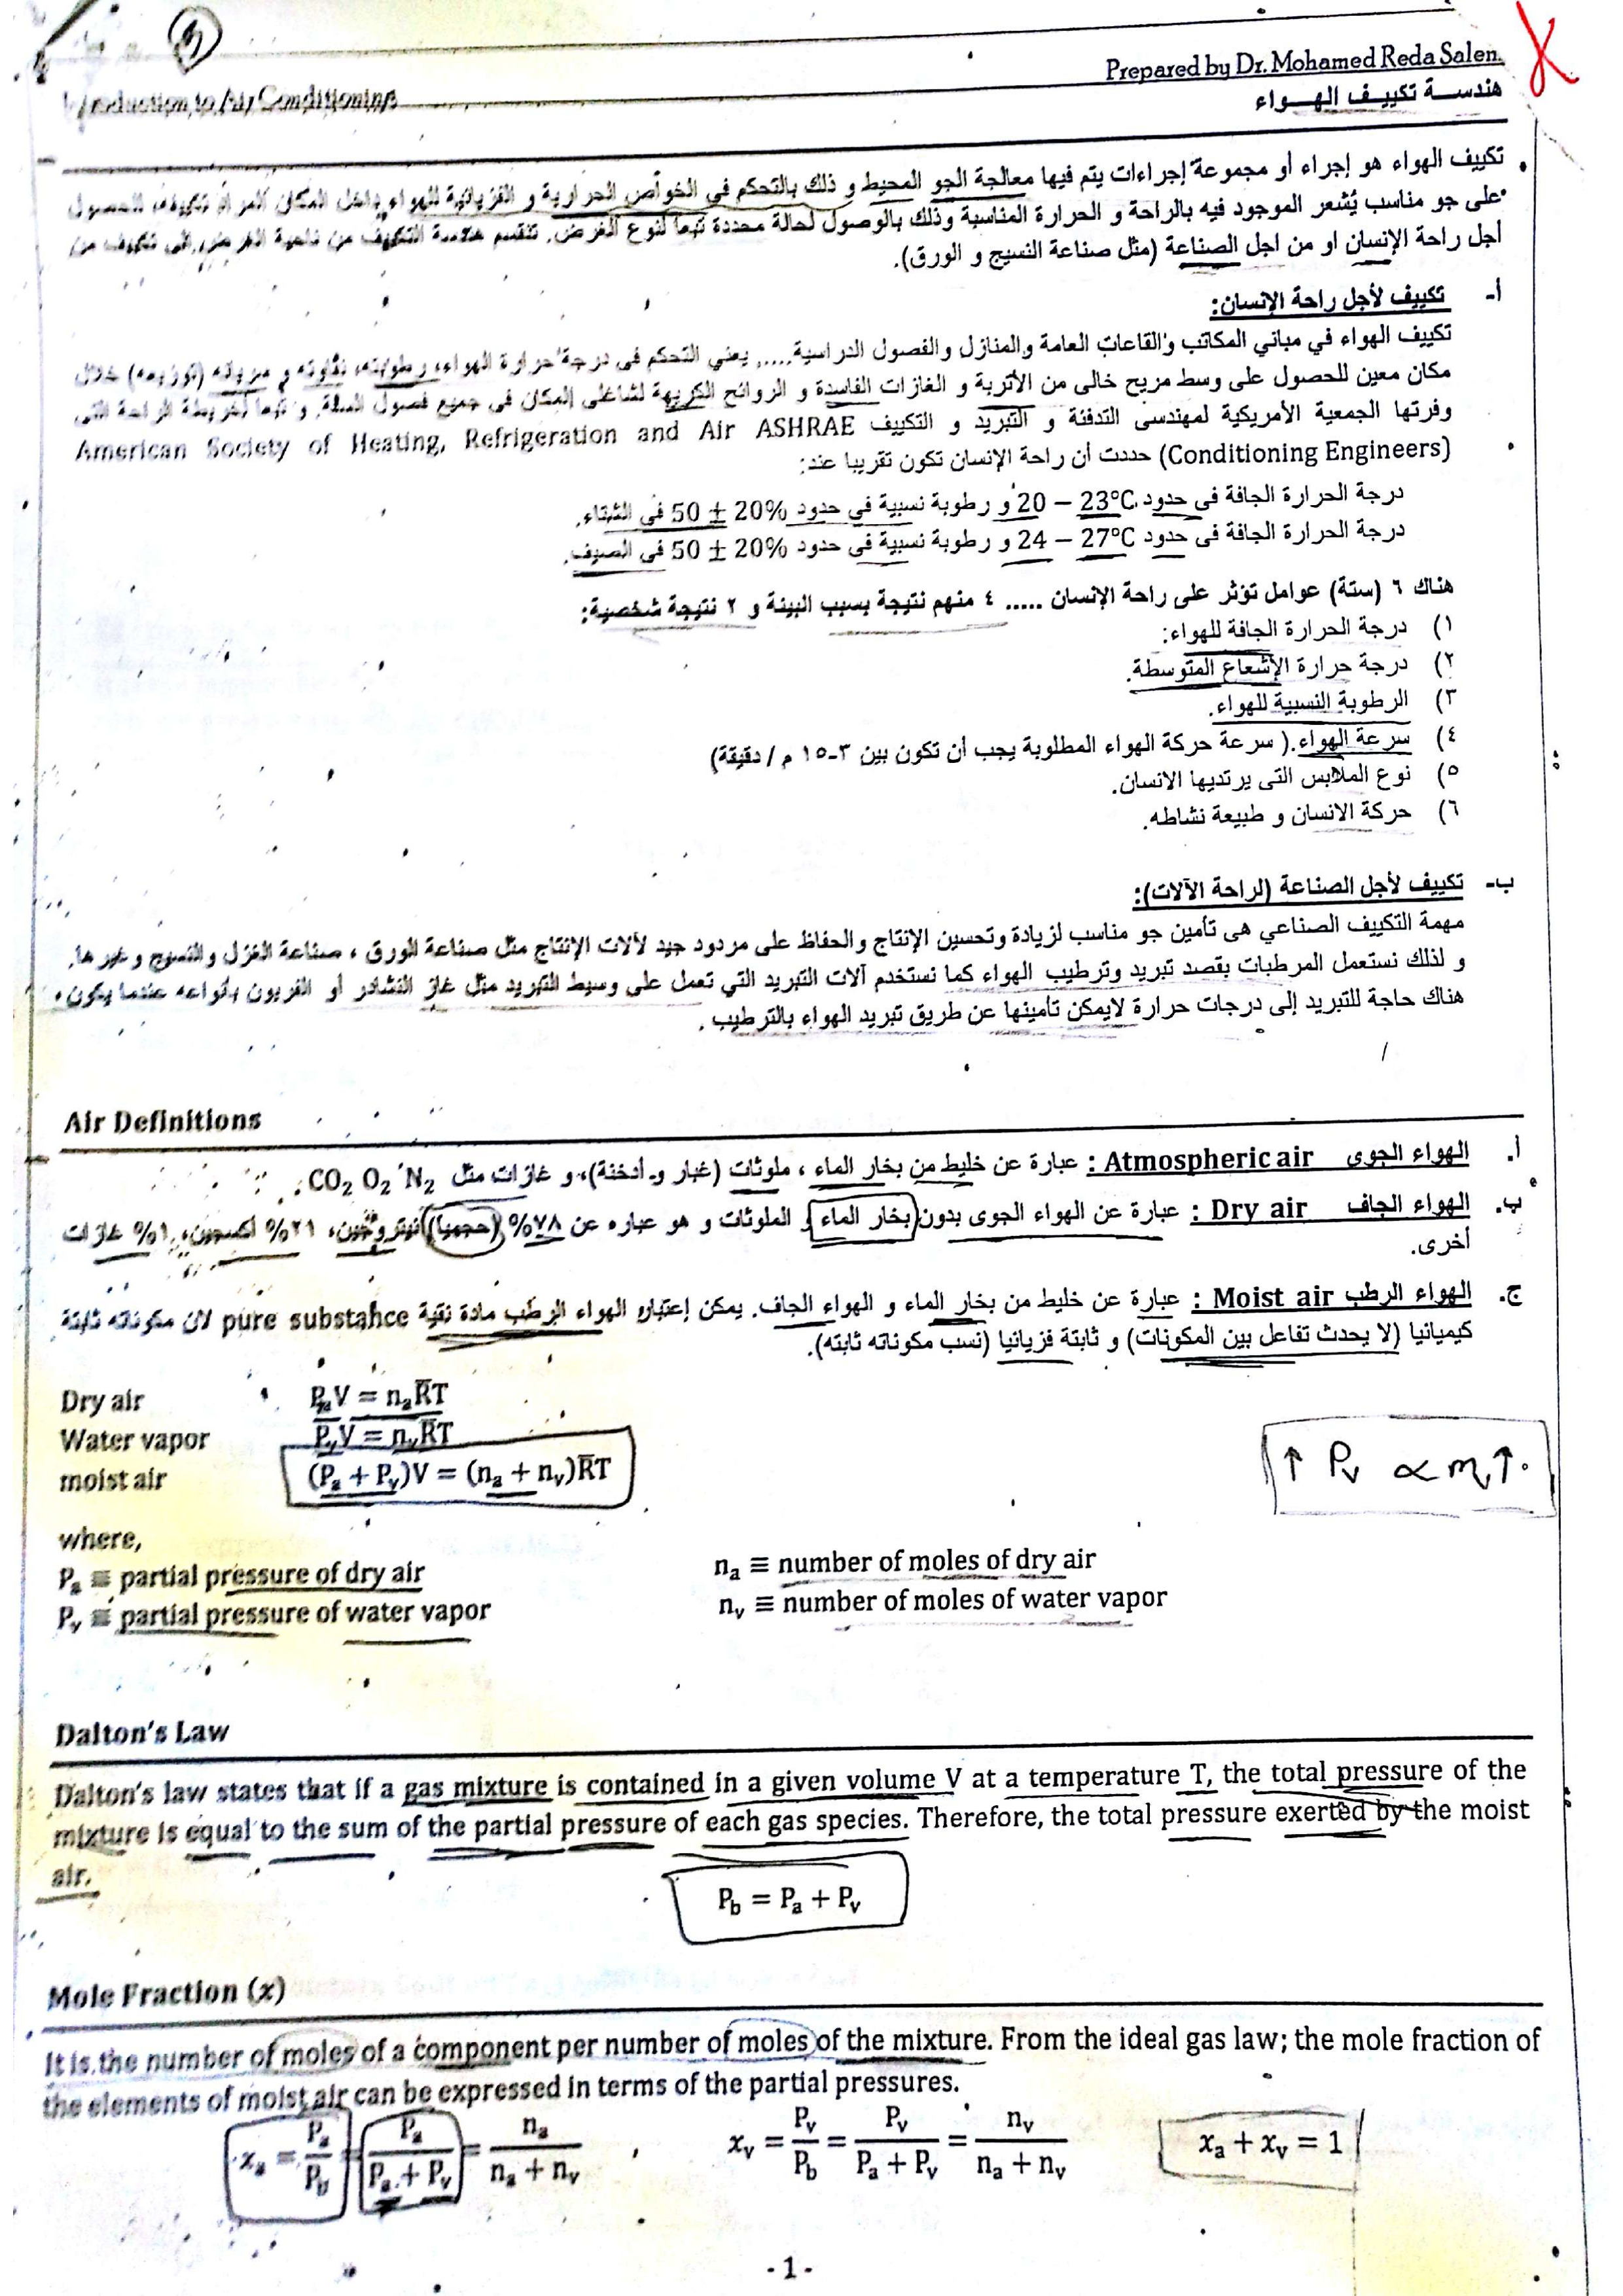 Prepared by Dr. Mohamed Reda Salem
Introduction to Air Conditioning
هندسة تكييف الهواء
تكييف الهواء هو إجراء أو مجموعة إجراءات يتم فيها معالجة الجو المحيط و ذلك بالتحكم في الخواص الحرارية و الفزيائية للهواء داخل المكان المراد تكييفه، للحصول
على جو مناسب يُشعر الموجود فيه بالراحة و الحرارة المناسبة وذلك بالوصول لحالة محددة تبعا لنوع الغرض. تنقسم هندسة التكييف من ناحية الغرض إلى تكييف من
أجل راحة الإنسان او من اجل الصناعة (مثل صناعة النسيج و الورق).
أ- تكييف لأجل راحة الإنسان:
تكييف الهواء في مباني المكاتب والقاعات العامة والمنازل والفصول الدراسية..... يعني التحكم فى درجة حرارة الهواء، رطوبته، نقاوته و سريانه (توزيعه) خلال
مكان معين للحصول على وسط مريح خالى من الأتربة و الغازات الفاسدة و الروائح الكريهة لشاغلى المكان فى جميع فصول السنة. و تبعا لخريطة الراحة التى
وفرتها الجمعية الأمريكية لمهندسى التدفئة و التبريد و التكييف American Society of Heating, Refrigeration and Air ASHRAE
(Conditioning Engineers) حددت أن راحة الإنسان تكون تقريبا عند:
درجة الحرارة الجافة فى حدود 20 – 23°C و رطوبة نسبية في حدود 50 ± 20% فى الشتاء.
درجة الحرارة الجافة فى حدود 24 – 27°C و رطوبة نسبية فى حدود 50 ± 20% فى الصيف.
هناك ٦ (ستة) عوامل تؤثر على راحة الإنسان ..... ٤ منهم نتيجة بسبب البيئة و ٢ نتيجة شخصية:
١) درجة الحرارة الجافة للهواء:
٢) درجة حرارة الإشعاع المتوسطة.
٣) الرطوبة النسبية للهواء.
٤) سرعة الهواء.( سرعة حركة الهواء المطلوبة يجب أن تكون بين ٣-١٥ م / دقيقة)
٥) نوع الملابس التى يرتديها الانسان.
٦) حركة الانسان و طبيعة نشاطه.
ب- تكييف لأجل الصناعة (لراحة الآلات):
مهمة التكييف الصناعي هى تأمين جو مناسب لزيادة وتحسين الإنتاج والحفاظ على مردود جيد لآلات الإنتاج مثل صناعة الورق ، صناعة الغزل والنسيج وغيرها.
و لذلك نستعمل المرطبات بقصد تبريد وترطيب الهواء كما نستخدم آلات التبريد التي تعمل على وسيط التبريد مثل غاز النشادر أو الفريون بأنواعه عندما يكون
هناك حاجة للتبريد إلى درجات حرارة لايمكن تأمينها عن طريق تبريد الهواء بالترطيب .
Air Definitions
أ. الهواء الجوى Atmospheric air : عبارة عن خليط من بخار الماء ، ملوثات (غبار و أدخنة)، و غازات مثل CO₂ O₂ N₂ .
ب. الهواء الجاف Dry air : عبارة عن الهواء الجوى بدون بخار الماء و الملوثات و هو عباره عن ٧٨% (حجميا) نيتروجين، ٢١% أكسجين، ١% غازات
أخرى.
ج. الهواء الرطب Moist air : عبارة عن خليط من بخار الماء و الهواء الجاف. يمكن إعتبار الهواء الرطب مادة نقية pure substance لان مكوناته ثابتة
كيميائيا (لا يحدث تفاعل بين المكونات) و ثابتة فزيائيا (نسب مكوناته ثابته).
Dry air PₐV = nₐR̅T
Water vapor PᵥV = nᵥR̅T
moist air (Pₐ + Pᵥ)V = (nₐ + nᵥ)R̅T
↑ Pᵥ ∝ mᵥ ↑
where,
Pₐ ≡ partial pressure of dry air nₐ ≡ number of moles of dry air
Pᵥ ≡ partial pressure of water vapor nᵥ ≡ number of moles of water vapor
Dalton's Law
Dalton's law states that if a gas mixture is contained in a given volume V at a temperature T, the total pressure of the
mixture is equal to the sum of the partial pressure of each gas species. Therefore, the total pressure exerted by the moist
air.
P_b = Pₐ + Pᵥ
Mole Fraction (x)
It is the number of moles of a component per number of moles of the mixture. From the ideal gas law; the mole fraction of
the elements of moist air can be expressed in terms of the partial pressures.
xₐ = Pₐ/P_b = Pₐ/(Pₐ + Pᵥ) = nₐ/(nₐ + nᵥ) , xᵥ = Pᵥ/P_b = Pᵥ/(Pₐ + Pᵥ) = nᵥ/(nₐ + nᵥ) xₐ + xᵥ = 1
- 1 -